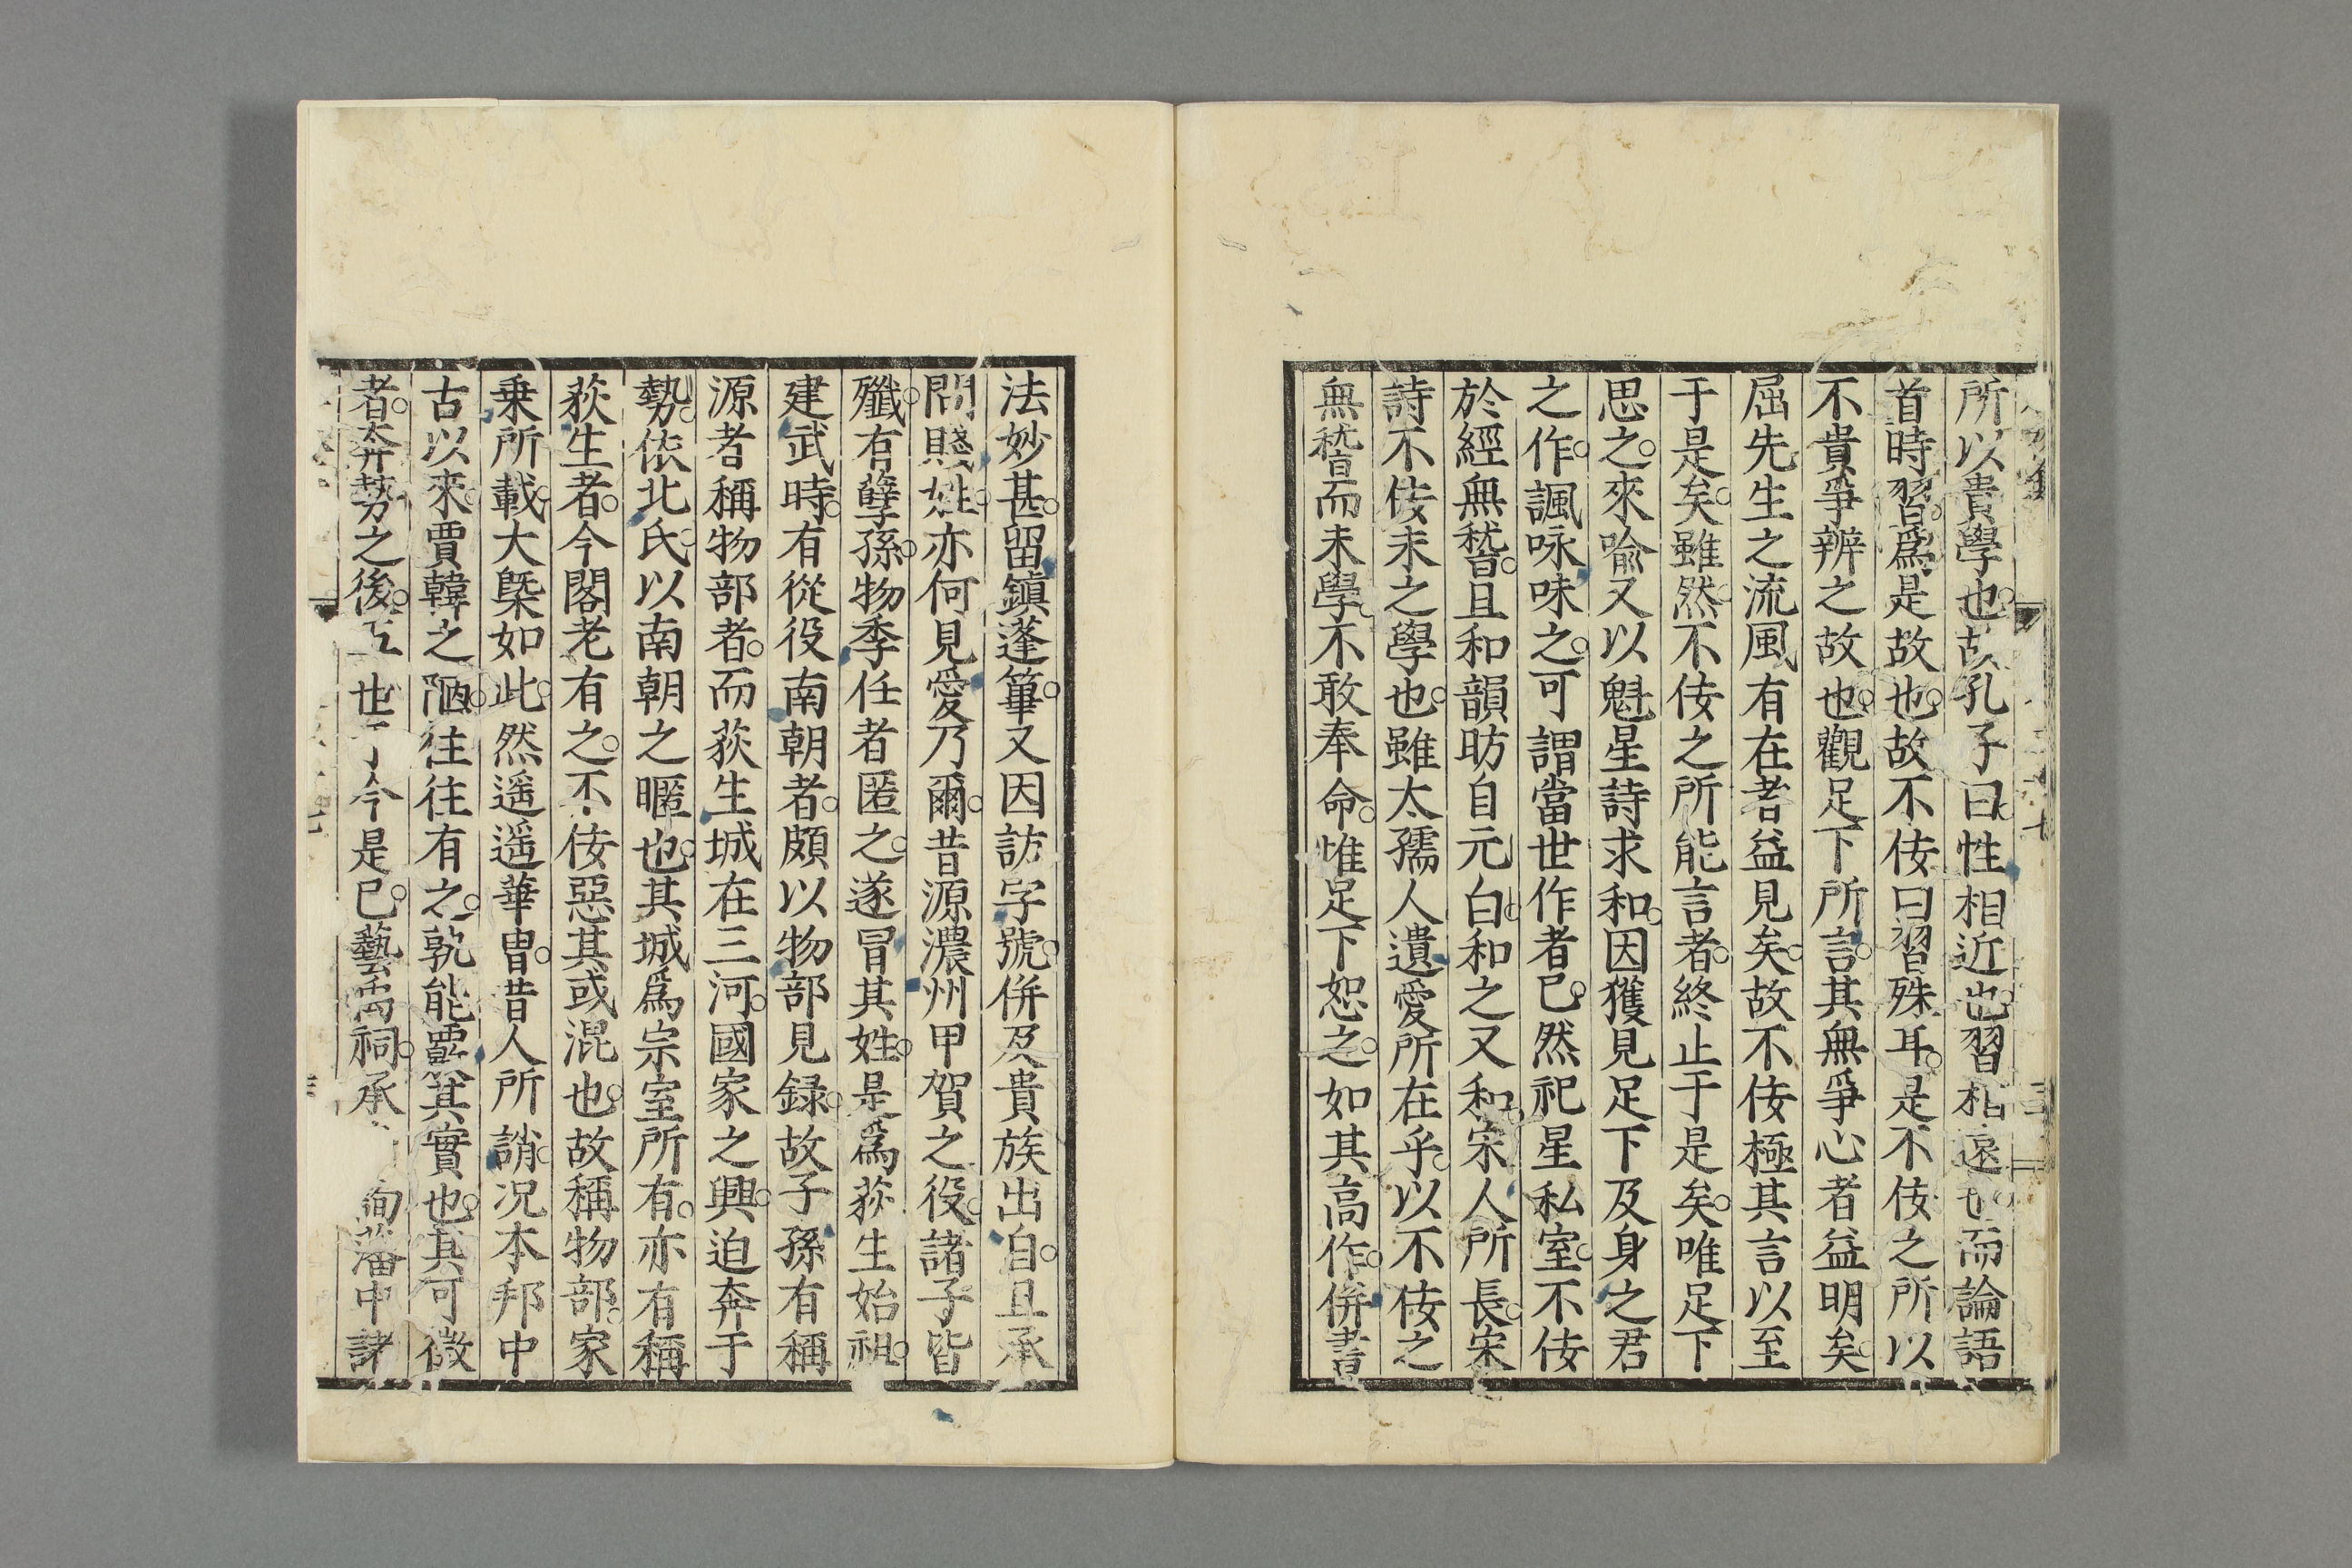 所以貴學也故孔子曰性相近也習相遠也而論語
首時習爲是故也故不佞曰習殊耳是不佞之所以
不貴爭辨之故也觀足下所言其無爭心者益明矣
屈先生之流風有在者益見矣故不佞極其言以至
于是矣雖然不佞之所能言者終止于是矣唯足下
思之來喩又以魁星詩求和因獲見足下及身之君
之作諷咏味之可謂當世作者已然祀星私室不佞
於經無嵇且和韻昉自元白和之又和宋人所長宋
詩不佞未之學也雖太孺人遺愛所在乎以不佞之
無嵇而未學不敢奉命惟足下恕之如其高作併書
法妙甚留鎮蓬篳又因訪字號併及貴族出自且承
問賤姓亦何見愛乃爾昔源濃州甲賀之役諸子皆
殲有孽孫物季任者匿之遂冒其姓是爲荻生始祖
建武時有從役南朝者頗以物部見録故子孫有稱
源者稱物部者而荻生城在三河國家之興迫奔于
勢依北氏以南朝之暱也其城爲宗室所有亦有稱
荻生者今閣老有之不佞惡其或混也故稱物部家
乗所載大槩如此然遥遥華胄昔人所誚况本邦中
古以來賈韓之陋往往有之孰能覈其實也其可徵
者奔勢之後五世于今是已藝禹祠承 詢藩中諸